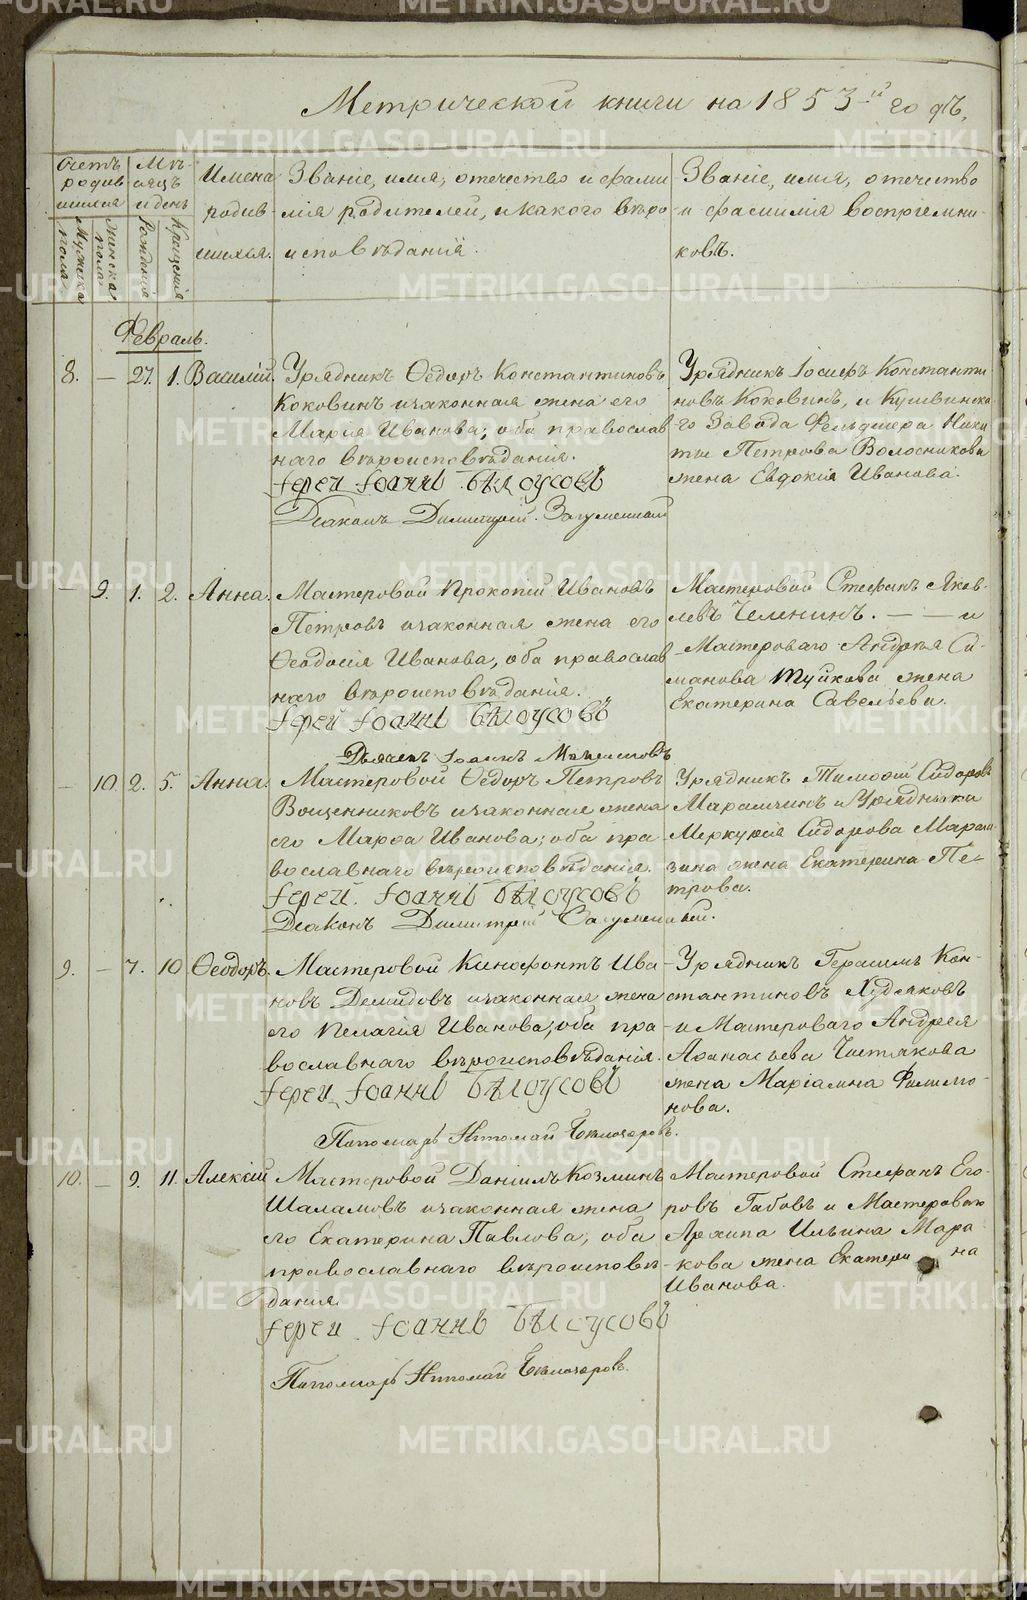 Метрической книги на 1853-й годъ,
Счетъ родив шихся
Мужеска пола
женска пола
Мѣ- сяцъ и день
Рожденія
Крещенія
Имена родив- шихся.
Званіе, имя, отечество и фами-
лія родителей, и какого вѣро
исповѣданія.
Званіе, имя, отечество
и фамилія воспріемни-
ковъ.
Февраль.
8. — 27. 1. Василій.
Урядникъ Ѳедоръ Константиновъ
Коковинъ и законная жена его
Марія Иванова; оба православ
наго вѣроисповѣданія.
Іерей Іоаннъ Бѣлоусовъ
Діаконъ Димитрій
Урядникъ Іосифъ Константи
новъ Коковинъ, и Кушвинска-
го Завода Фельдшера Ники
ты Петрова Волосникова
жена Евдокія Иванова.
— 9. 1. 2. Анна.
Мастеровой Прокопій Ивановъ
Петровъ и законная жена его
Ѳеодосія Иванова, оба православ
наго вѣроисповѣданія.
Іерей Іоаннъ Бѣлоусовъ
Дьячекъ Іоаннъ
Мастеровой Стефанъ Яков-
левъ Челенинъ. — — и
Мастероваго Андрея Си-
манова Туйкова жена
Екатерина Савельева.
— 10. 2. 5. Анна.
Мастеровой Ѳедоръ Петровъ
Вощенниковъ и законная жена
его Марѳа Иванова; оба пра
вославнаго вѣроисповѣданія.
Іерей Іоаннъ Бѣлоусовъ
Діаконъ Димитрій
Урядникъ Тимоѳей Сидоровъ
и Урядника
Меркурія Сидорова
жена Екатерина Пе-
трова.
9. — 7. 10 Ѳеодоръ.
Мастеровой Ксенофонтъ Ива
новъ Демидовъ и законная жена
его Пелагія Иванова; оба пра
вославнаго вѣроисповѣданія.
Іерей Іоаннъ Бѣлоусовъ
Пономарь
Урядникъ Герасимъ Кон-
стантиновъ Худяковъ
и Мастероваго Андрея
Аѳанасьева Чистякова
жена Маріамна Филимо-
нова.
10. — 9. 11. Алексій
Мастеровой Даніилъ Козминъ
Шаламовъ и законная жена
его Екатерина Павлова; оба
православнаго вѣроисповѣ-
данія.
Іерей Іоаннъ Бѣлоусовъ
Пономарь
Мастеровой Стефанъ Его-
ровъ Габовъ и Мастероваго
Архипа Ильина Мара
кова жена Екатерина
Иванова.
METRIKI.GASO-URAL.RU